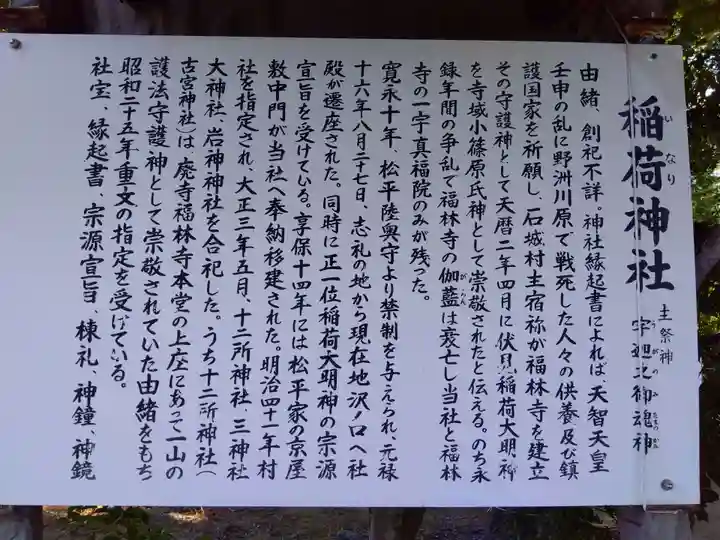 稲荷神社
いなり
主祭神
宇迦之御魂神
うがのみたまのかみ
由緒、創祀不詳。神社縁起書によれば、天智天皇
壬申の乱に野洲川原で戦死した人々の供養及び鎮
護国家を祈願し、石城村主宿祢が福林寺を建立
その守護神として天暦二年四月に伏見稲荷大明神
を寺域小篠原氏神として崇敬されたと伝える。のち永
録年間の争乱で福林寺の伽藍は衰亡し当社と福林
がらん
寺の一宇真福院のみが残った。
寛永十年、松平陸奥守より禁制を与えられ、元禄
十六年八月二十七日、志礼の地から現在地沢ノ口へ社
殿が遷座された。同時に正一位稲荷大明神の宗源
宣旨を受けている。享保十四年には松平家の京屋
敷中門が当社へ奉納移建された。明治四十一年村
社を指定され、大正三年五月、十二所神社、三神社
大神社、岩神神社を合祀した。うち十二所神社(
古宮神社)は廃寺福林寺本堂の上座にあって一山の
護法守護神として崇敬されていた由緒をもち
昭和二十五年重文の指定を受けている。
社宝、縁起書、宗源宣旨、棟礼、神鐘、神鏡